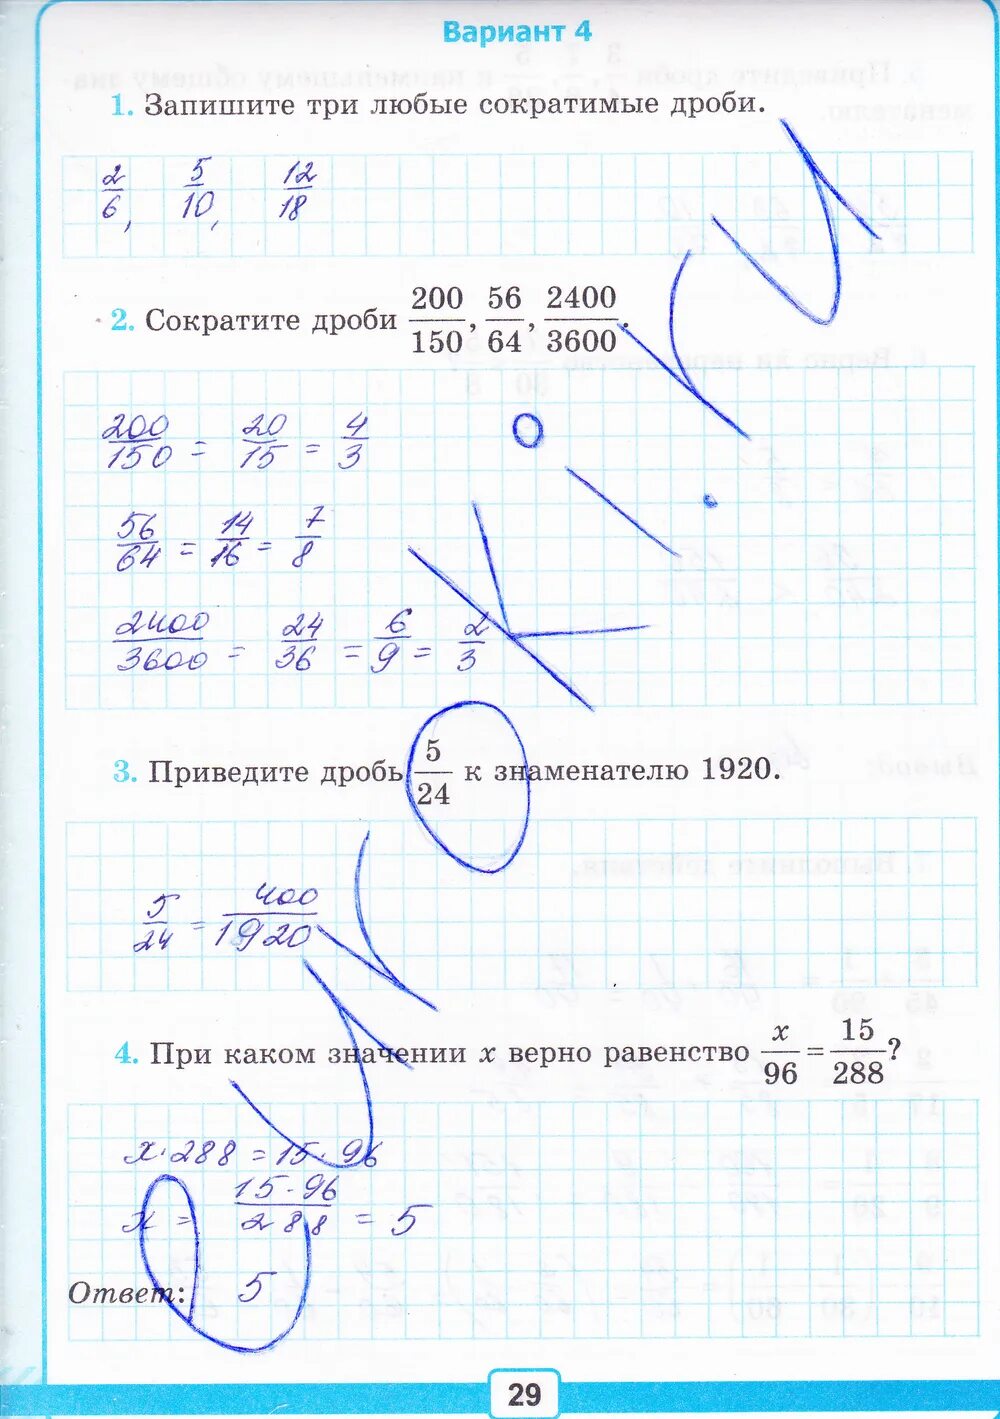 Вариант 4
1. Запишите три любые сократимые дроби.
2/6, 5/10, 12/18
2. Сократите дроби 200/150, 56/64, 2400/3600.
200/150 = 20/15 = 4/3
56/64 = 14/16 = 7/8
2400/3600 = 24/36 = 6/9 = 2/3
3. Приведите дробь 5/24 к знаменателю 1920.
5/24 = 400/1920
4. При каком значении x верно равенство x/96 = 15/288?
x·288 = 15·96
x = 15·96/288 = 5
Ответ: 5
29